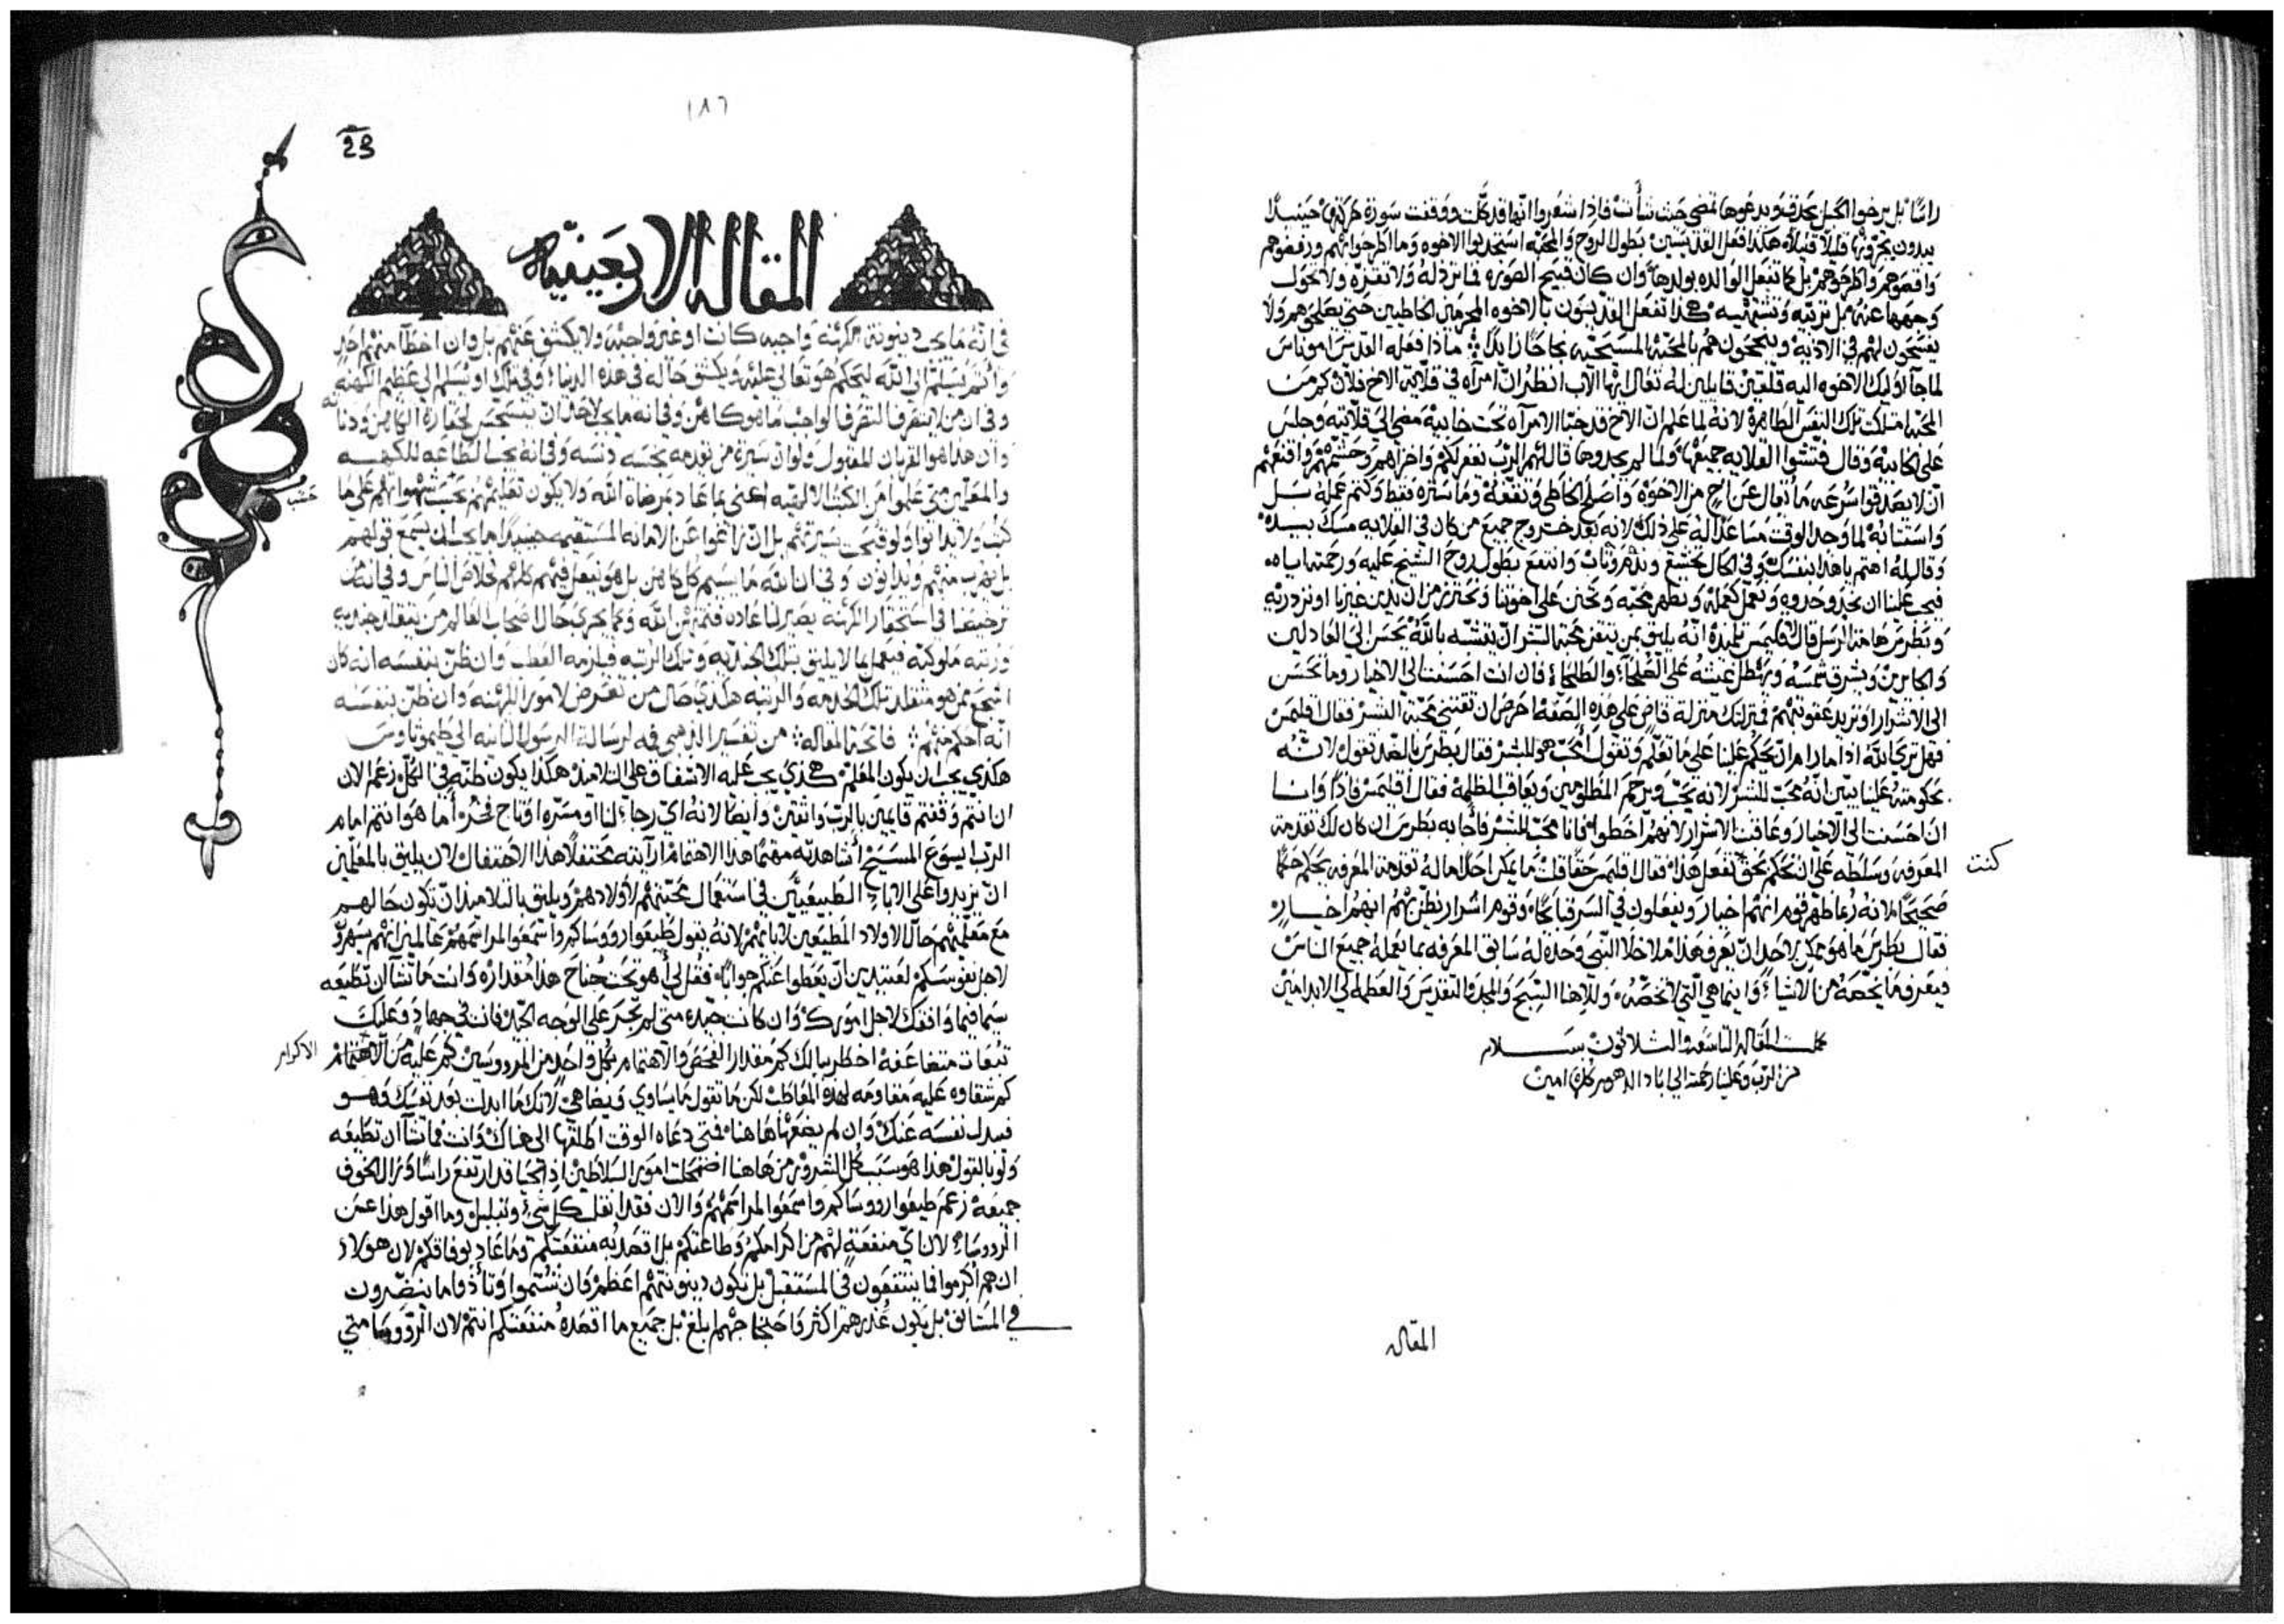 راسًا بل يرخوا الحبل بحدق ويدعوها تمضي حيث شأت فاذا شعروا انها قد كلّت ووقفت سورة حركتها حينيذًا
يبدون يجرونها قليلًا قليلًا هكذا فعل القديسين بطول الروح والمحبه استجدبوا الاخوه وما اطرحوا لهم ورفضوهم
واقصوهم واطرحوهم بل كما تفعل الوالده بولدها وان كان قبيح الصوره فما ترذله ولا تقذره ولا تحول
وجهها عنه بل تربيه وتشتهيه هكذا تفعل القديسون بالاخوه المجرمين الخاطيين حتى يصلحوهم ولا
يفتحون لهم في الاذيه وينجحون هم بالمحبه المسيحيه نجاحًا زايدًا ماذا فعله القديس اموناس
لما جآ اوليك الاخوه اليه قلقين قايلين له تعال ايها الاب انظر ان امرآه في قلّاية الاخ فلان كم من
المحبه امتلكت تلك النفس الطاهرة لانه لما علم ان الاخ قد خبا الامرآه تحت خابيه مضى الى قلّايته وجلس
على الخابيه وقال فتشوا القلايه جميعها ولما لم يجدوها قال لهم الرب يغفر لكم واخزاهم وحشمهم واقنعهم
ان لا يصدقوا بسرعه ما يقال عن اخ من الاخوه واصلح الخاطي ونفعه وما ستره فقط وكتم عمله بل
واستتابه لما وجد الوقت مساعدًا له على ذلك لانه بعد خروج جميع من كان في القلايه مسك بيده
وقال له اهتم ياهذا بنفسك وفي الحال تخشع وندم وتاب وانتفع بطول روح الشيخ عليه ورحمته اياه
فيجب علينا ان نحدو حدوه ونعمل كعمله ونظهر محبه ونحنن على اخوتنا ونحترز من ان ندين غيرنا او نزدريه
وبطرس هامة الرسل قال لاقليمس تلميذه انه يليق بمن يتقن محبة البشر ان يتشبه بالله يحسن الى العادلين
والجايرين ويشرق شمسه ويهطل غيثه على الصلحآ والطلحآ فان انت احسنت الى الاخيار وما تحسن
الى الاشرار وتريد عقوبتهم فمنزلتك منزلة قاض على هذه الصفه احرص ان تقتني محبة البشر فقال اقليمس
فهل ترى الله اذا ما رام ان يحكم علينا على ما تعلم وتقول محب هو للبشر فقال بطرس بالضد تقول لانه
بحكومته علينا يبين انه محب للبشر لانه يحب ويرحم المظلومين ويعاقب الظلمة فقال اقليمس فاذًا وانا
ان احسنت الى الاخيار وعاقبت الاشرار لانهم اخطوا فانا محب للبشر فاجابه بطرس ان كان لك تقدمة
المعرفه وسلطه على ان تحكم بحق تفعل هذا فقال اقليمس حقًا قلت ما يمكن احدًا ما له تقدمة المعرفه يحكم حكمًا
كنت
صحيحًا لانه ربما ظهر قوم انهم اخيار ويفعلون في السر قبايحًا وقوم اشرار نظن بهم انهم اخيار
فقال بطرس ما هو ممكن لاحد ان يعرف هذا ما خلا النبي وحده له سابق المعرفه بما يعمله جميع الناس
فيعرف ما يخصه من الاشيا وانما هي التي لا تخصه وللالهنا السبح والمجد والتقديس والعظمه الى الابد امين
كملت المقاله التاسعه والثلاثون بسلام
من الرب وعلينا رحمته الى اباد الدهور كلها امين
المقاله
١٨٦
23
المقاله الاربعينيه
في انه ما يجب دينونة الكهنه واجبه كانت او غير واجبه ولا يكشف عنهم بل وان اخطآ منهم احد
وان من لا يتقرف التقرف الواجب ما هو كاهن وفي انه ما يجب لاحد ان يتنجس لحقارة الكاهن ودنآ
وان هذا هو القربان المقبول ولو ان سيرة من تقدمه نجسه دنسه وفي انه يجب الطاعه للكهنه
والمعلمين متى علموا من الكتب الالهيه اعني بما عاد بمرضاة الله ولا يكون تعليمهم بحسب شهواتهم على ما
كتب ولا يدانوا ولو قبحت سيرتهم بل ان زاغوا عن الامانه المستقيمه حينيذًا ما يجب ان يسمع قولهم
بل يهرب منهم ويدانون وفي ان الله ما يسيم كل كاهن بل هو يفعل فيهم كلهم لخلاص الناس وفي انه متى
ترخصنا في استحقار الكهنه يصير لنا عاده فنتهن الله وكما يجري حال اصحاب العالم من يتقلد جنديه
ورتبه ملوكيه فيعمل بما لا يليق بتلك الجنديه وتلك الرتبه فيلزمه العطب وان ظن بنفسه انه كان
اشجع ممن هو متقلد تلك الخدمه والرتبه هكذى حال من تعرض لامور الكهنه وان ظن بنفسه
انه احكم منهم فاتحة المقاله من تفسير الذهبي فمه لرسالة الرسول الثانيه الى طيموثاوس
هكذى يجب ان يكون المعلم هكذى يجب عليه الاشفاق على التلاميذ هكذا يكون ظنه في الكل زعم الان
ان انتم وقفتم قايمين بالرب واثقين وايضًا لانه اي رجاء لنا او مسره او تاج فخر أما هو انتم امام
الرب ايسوع المسيح أشاهدته مهتمًا هذا الاهتمام أرآيته محتفلًا هذا الاحتفال لان يليق بالمعلمين
ان يزيدوا على الاباء الطبيعيين في استعمال محبتهم لاولادهم ويليق بالتلاميذ ان تكون حالهم
مع معلميهم حال الاولاد المطيعين لابايهم لانه يقول طيعوا رووساكم واسمعوا لمراسمهم عالمين انهم يسهرو
لاجل نفوسكم لعتيدين ان يعطوا عنكم جوابًا فقل لي أهو تحت جناح هذا مقداره وانت ما تشآ ان تطيعه
سيما فيما وافقك لاجل امورك وان كانت جيده متى لم تجر على الوجه الجيد فانت في جهاد وعليك
تبعات متضاعفه اخطر ببالك كم مقدار الفحص والاهتمام بكل واحد من المرووسين كم عليه من الاهتمام
كم شقاوه عليه مقاومه لهذه المفاظات لكن ما تقول ما يساوي ويضاهي لانك ما ابدلت بعد نفسك وهو
فبدل نفسه عنك وان لم يضعها هاهنا فمتى دعاه الوقت اطلقها الى هناك وانت فما تشآ ان تطيعه
ولو بالقول هذا هو سبب كل الشرور من هاهنا اضمحلت امور السلاطين اذ الحيا قد ارتفع راسًا وزال الخوف
جميعه زعم طيعوا رووساكم واسمعوا لمراسمهم والان فقد انقلب كل شي وتبلبل وما اقول هذا عن
الرووساء لان اي منفعه لهم من اكرامكم وطاعتكم بل اقصد به منفعتكم وما عاد بوفاقكم لان هولاء
ان هم اكرموا فما ينتفعون في المستقبل بل تكون دينونتهم اعظم وان شتموا وتأذوا ما ينضرون
في المستانف بل يكون عذرهم اكثر واحتجاجهم ابلغ بل جميع ما اقصده منفعتكم انتم لان الرووسا متى